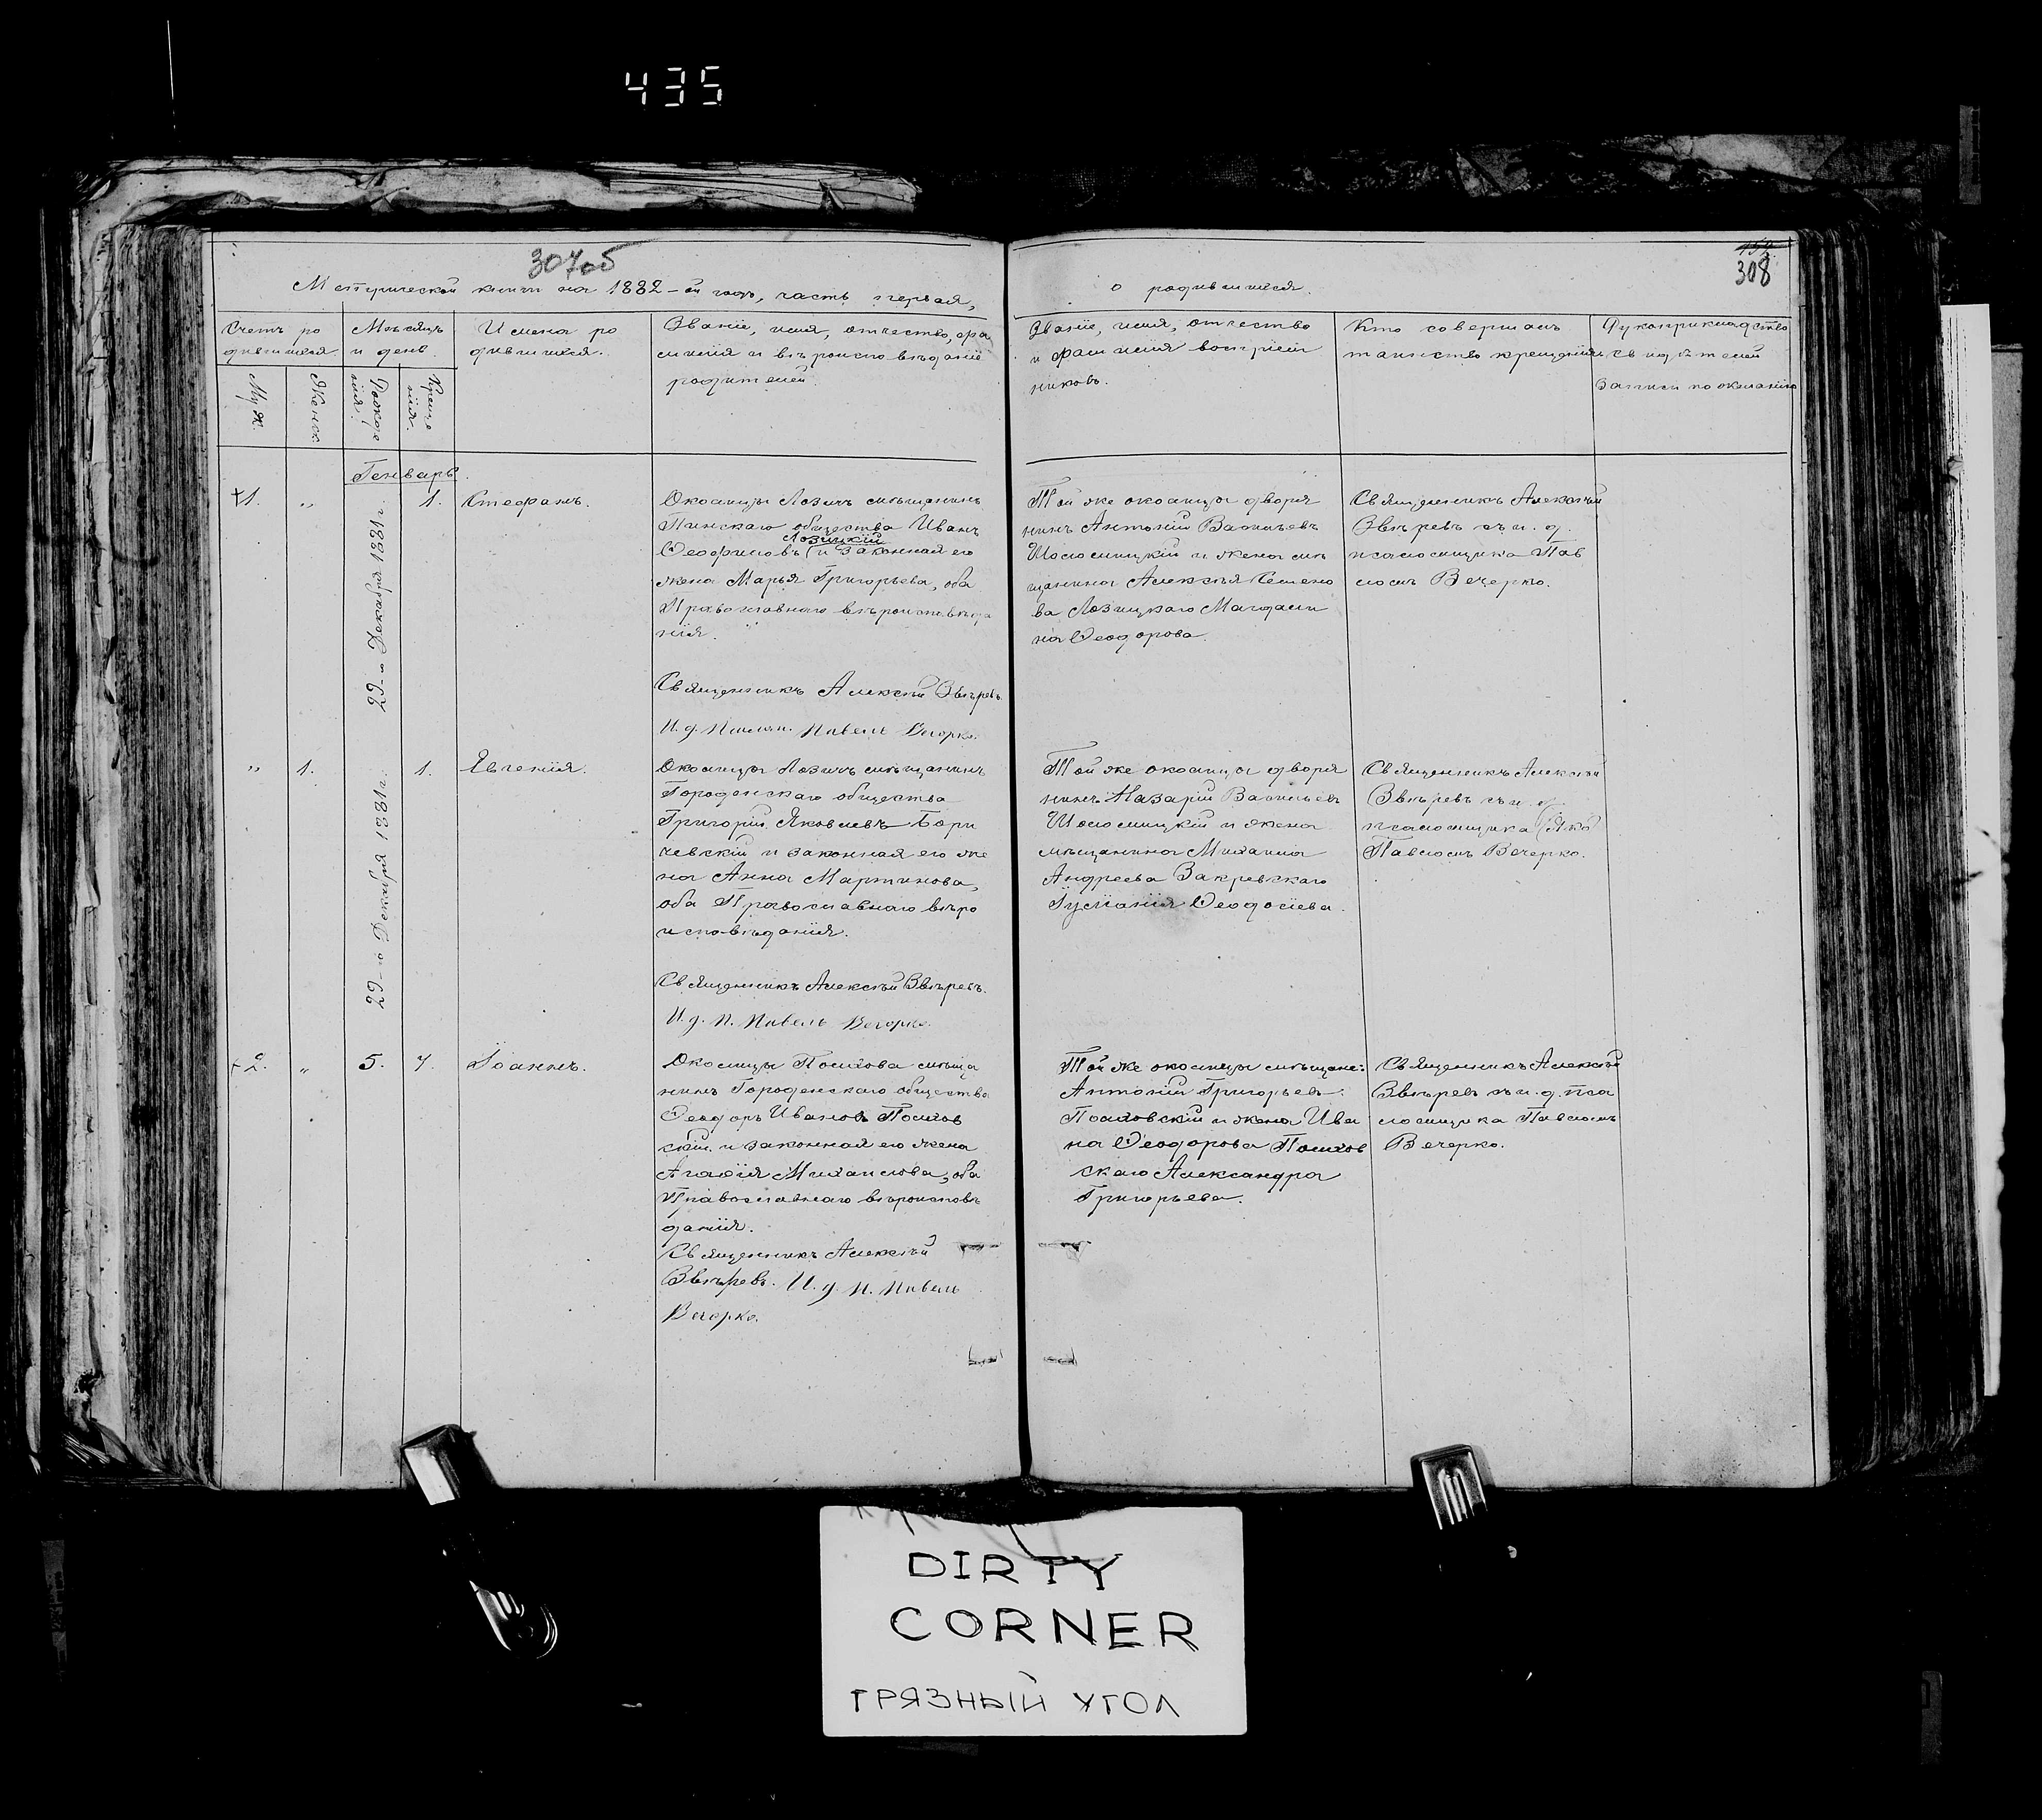 435
307об
308
Метрической книги на 1882-ой годъ, часть первая,
о родившихся.
Счетъ ро
дившихся.
Мѣсяцъ
и день.
Имена ро
дившихся.
Званіе, имя, отчество, фа
милія и вѣроисповѣданіе
родителей.
Званіе, имя, отчество
и фамилія воспріем
никовъ.
Кто совершалъ
таинство крещенія
Рукоприкладство
свидѣтелей
записи по желанію
Муж.
Женск.
Рожде
нія.
Креще
нія.
Генварь.
+1.
"
29-о Декабря 1881 г.
1.
Стефанъ.
Околицы Лозичъ мѣщанинъ
Пинскаго общества Иванъ
Лозицкій
Ѳеофиловъ (и законная его
жена Марья Григорьева, оба
Православнаго вѣроисповѣда
нія.
Священникъ Алексѣй Звѣревъ.
И. д. Псалом. Павелъ Вечорко.
Той же околицы дворя
нинъ Антоній Васильевъ
Шоломицкій и жена мѣ
щанина Алексѣя Семено
ва Лозицкаго Магдали
на Ѳеодорова.
Священникъ Алексѣй
Звѣревъ съ и. д.
псаломщика Пав
ломъ Вечерко.
"
1.
29-о Декабря 1881 г.
1.
Евгенія.
Околицы Лозичъ мѣщанинъ
Городенскаго общества
Григорій Яковлевъ Бори
чевскій и законная его же
на Анна Мартинова,
оба Православнаго вѣро
исповѣданія.
Священникъ Алексѣй Звѣревъ.
И. д. П. Павелъ Вечорко.
Той же околицы дворя
нинъ Назарій Васильевъ
Шоломицкій и жена
мѣщанина Михаила
Андреева Закревскаго
Іуліанія Ѳеодосіева.
Священникъ Алексѣй
Звѣревъ съ и. д.
псаломщика
Павломъ Вечерко.
+2.
"
5.
7.
Іоаннъ.
Околицы Полхова мѣща
нинъ Городенскаго общества
Ѳеодоръ Ивановъ Полхов
скій и законная его жена
Агафія Михаилова, оба
Православнаго вѣроисповѣ
данія.
Священникъ Алексѣй
Звѣревъ. И. д. П. Павелъ
Вечорко.
Той же околицы мѣщане:
Антоній Григорьевъ
Полховскій и жена Ива
на Ѳеодорова Полхов
скаго Александра
Григорьева.
Священникъ Алексѣй
Звѣревъ съ и. д. пса
ломщика Павломъ
Вечерко.
DIRTY
CORNER
ГРЯЗНЫЙ УГОЛ